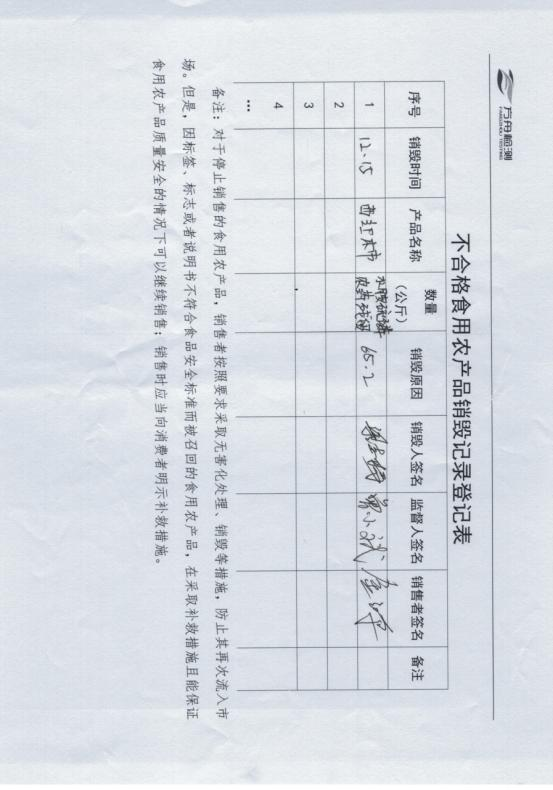 方舟检测
FANGZHOU TESTING
不合格食用农产品销毁记录登记表
序号 销毁时间 产品名称 数量（公斤） 销毁原因 销毁人签名 监督人签名 销售者签名 备注
1 12.15 西红柿 农药残留 65.2
2
3
4
...
备注：对于停止销售的食用农产品，销售者按照要求采取无害化处理、销毁等措施，防止其再次流入市
场。但是，因标签、标志或者说明书不符合食品安全标准而被召回的食用农产品，在采取补救措施且能保证
食用农产品质量安全的情况下可以继续销售；销售时应当向消费者明示补救措施。